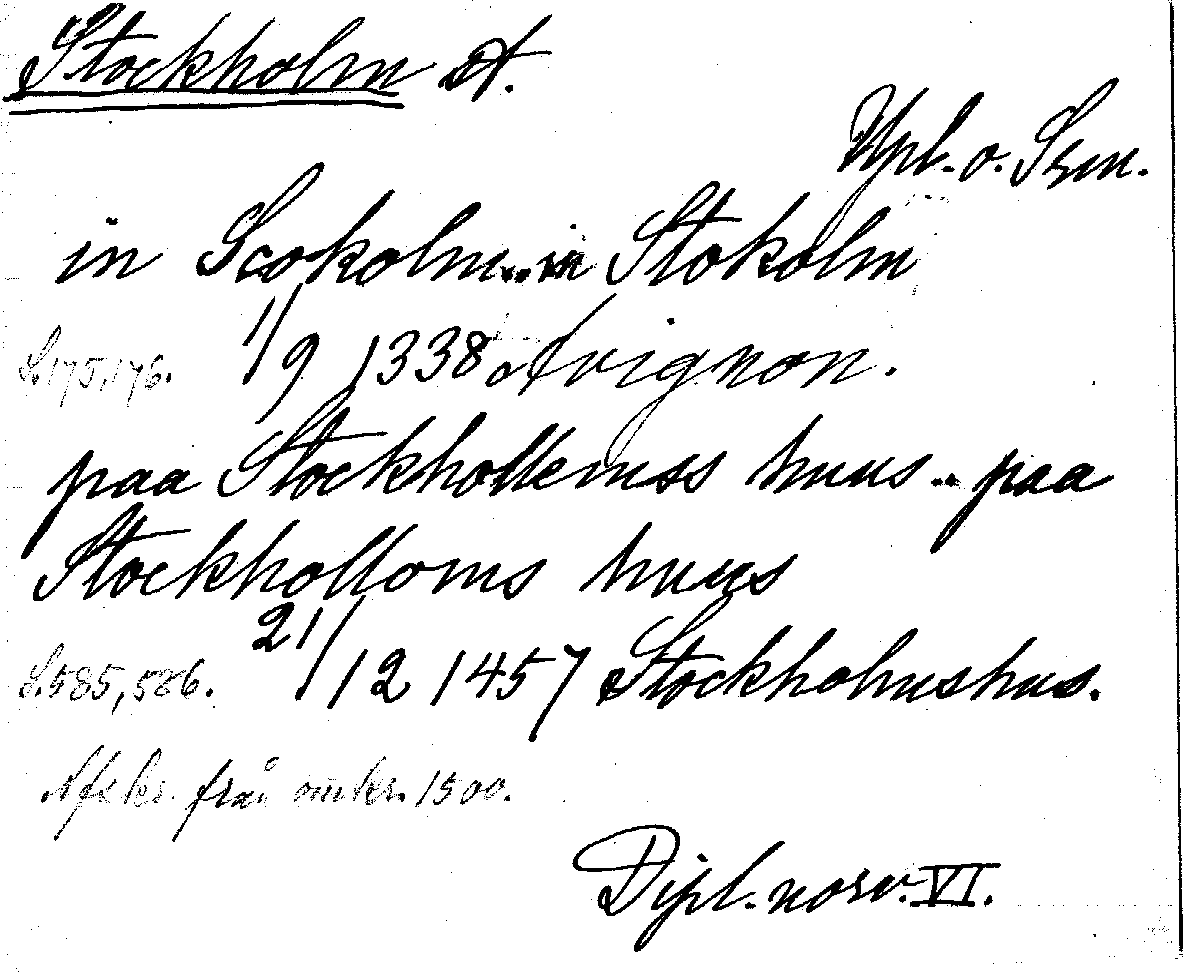 Stockholm st.
Upl. o. Srm.
in Scokolm .. in Stokolm
S. 175, 176. 1/9 1338 Avignon.
paa Stockhollemss huus .. paa
Stockholloms huus
S. 585, 586. 21/12 1457 Stockholmshus.
Afskr. från omkr. 1500.
Dipl. norv. VI.